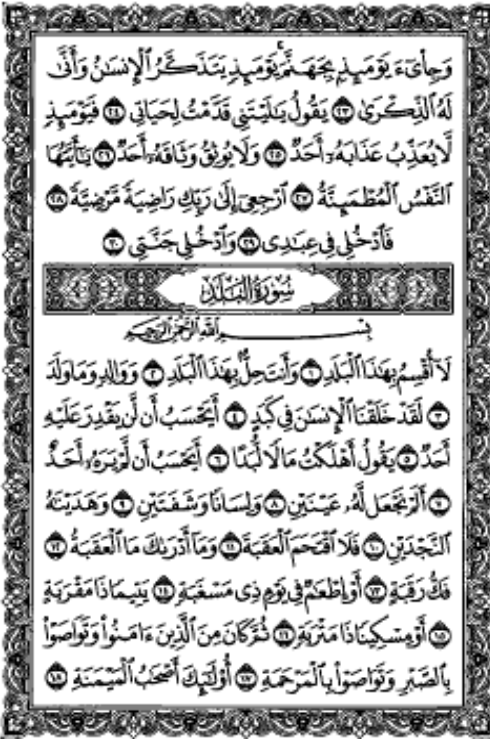 وَجِا۟يٓءَ يَوْمَئِذٍۭ بِجَهَنَّمَۚ يَوْمَئِذٍ يَتَذَكَّرُ ٱلْإِنسَٰنُ وَأَنَّىٰ
لَهُ ٱلذِّكْرَىٰ ٢٣ يَقُولُ يَٰلَيْتَنِى قَدَّمْتُ لِحَيَاتِى ٢٤ فَيَوْمَئِذٍ
لَّا يُعَذِّبُ عَذَابَهُۥٓ أَحَدٌ ٢٥ وَلَا يُوثِقُ وَثَاقَهُۥٓ أَحَدٌ ٢٦ يَٰٓأَيَّتُهَا
ٱلنَّفْسُ ٱلْمُطْمَئِنَّةُ ٢٧ ٱرْجِعِىٓ إِلَىٰ رَبِّكِ رَاضِيَةً مَّرْضِيَّةً ٢٨
فَٱدْخُلِى فِى عِبَٰدِى ٢٩ وَٱدْخُلِى جَنَّتِى ٣٠
سُورَةُ الْبَلَدِ
بِسْمِ ٱللَّهِ ٱلرَّحْمَٰنِ ٱلرَّحِيمِ
لَآ أُقْسِمُ بِهَٰذَا ٱلْبَلَدِ ١ وَأَنتَ حِلٌّۢ بِهَٰذَا ٱلْبَلَدِ ٢ وَوَالِدٍ وَمَا وَلَدَ
٣ لَقَدْ خَلَقْنَا ٱلْإِنسَٰنَ فِى كَبَدٍ ٤ أَيَحْسَبُ أَن لَّن يَقْدِرَ عَلَيْهِ
أَحَدٌ ٥ يَقُولُ أَهْلَكْتُ مَالًا لُّبَدًا ٦ أَيَحْسَبُ أَن لَّمْ يَرَهُۥٓ أَحَدٌ
٧ أَلَمْ نَجْعَل لَّهُۥ عَيْنَيْنِ ٨ وَلِسَانًا وَشَفَتَيْنِ ٩ وَهَدَيْنَٰهُ
ٱلنَّجْدَيْنِ ١٠ فَلَا ٱقْتَحَمَ ٱلْعَقَبَةَ ١١ وَمَآ أَدْرَىٰكَ مَا ٱلْعَقَبَةُ ١٢
فَكُّ رَقَبَةٍ ١٣ أَوْ إِطْعَٰمٌ فِى يَوْمٍ ذِى مَسْغَبَةٍ ١٤ يَتِيمًا ذَا مَقْرَبَةٍ
١٥ أَوْ مِسْكِينًا ذَا مَتْرَبَةٍ ١٦ ثُمَّ كَانَ مِنَ ٱلَّذِينَ ءَامَنُوا۟ وَتَوَاصَوْا۟
بِٱلصَّبْرِ وَتَوَاصَوْا۟ بِٱلْمَرْحَمَةِ ١٧ أُو۟لَٰٓئِكَ أَصْحَٰبُ ٱلْمَيْمَنَةِ ١٨